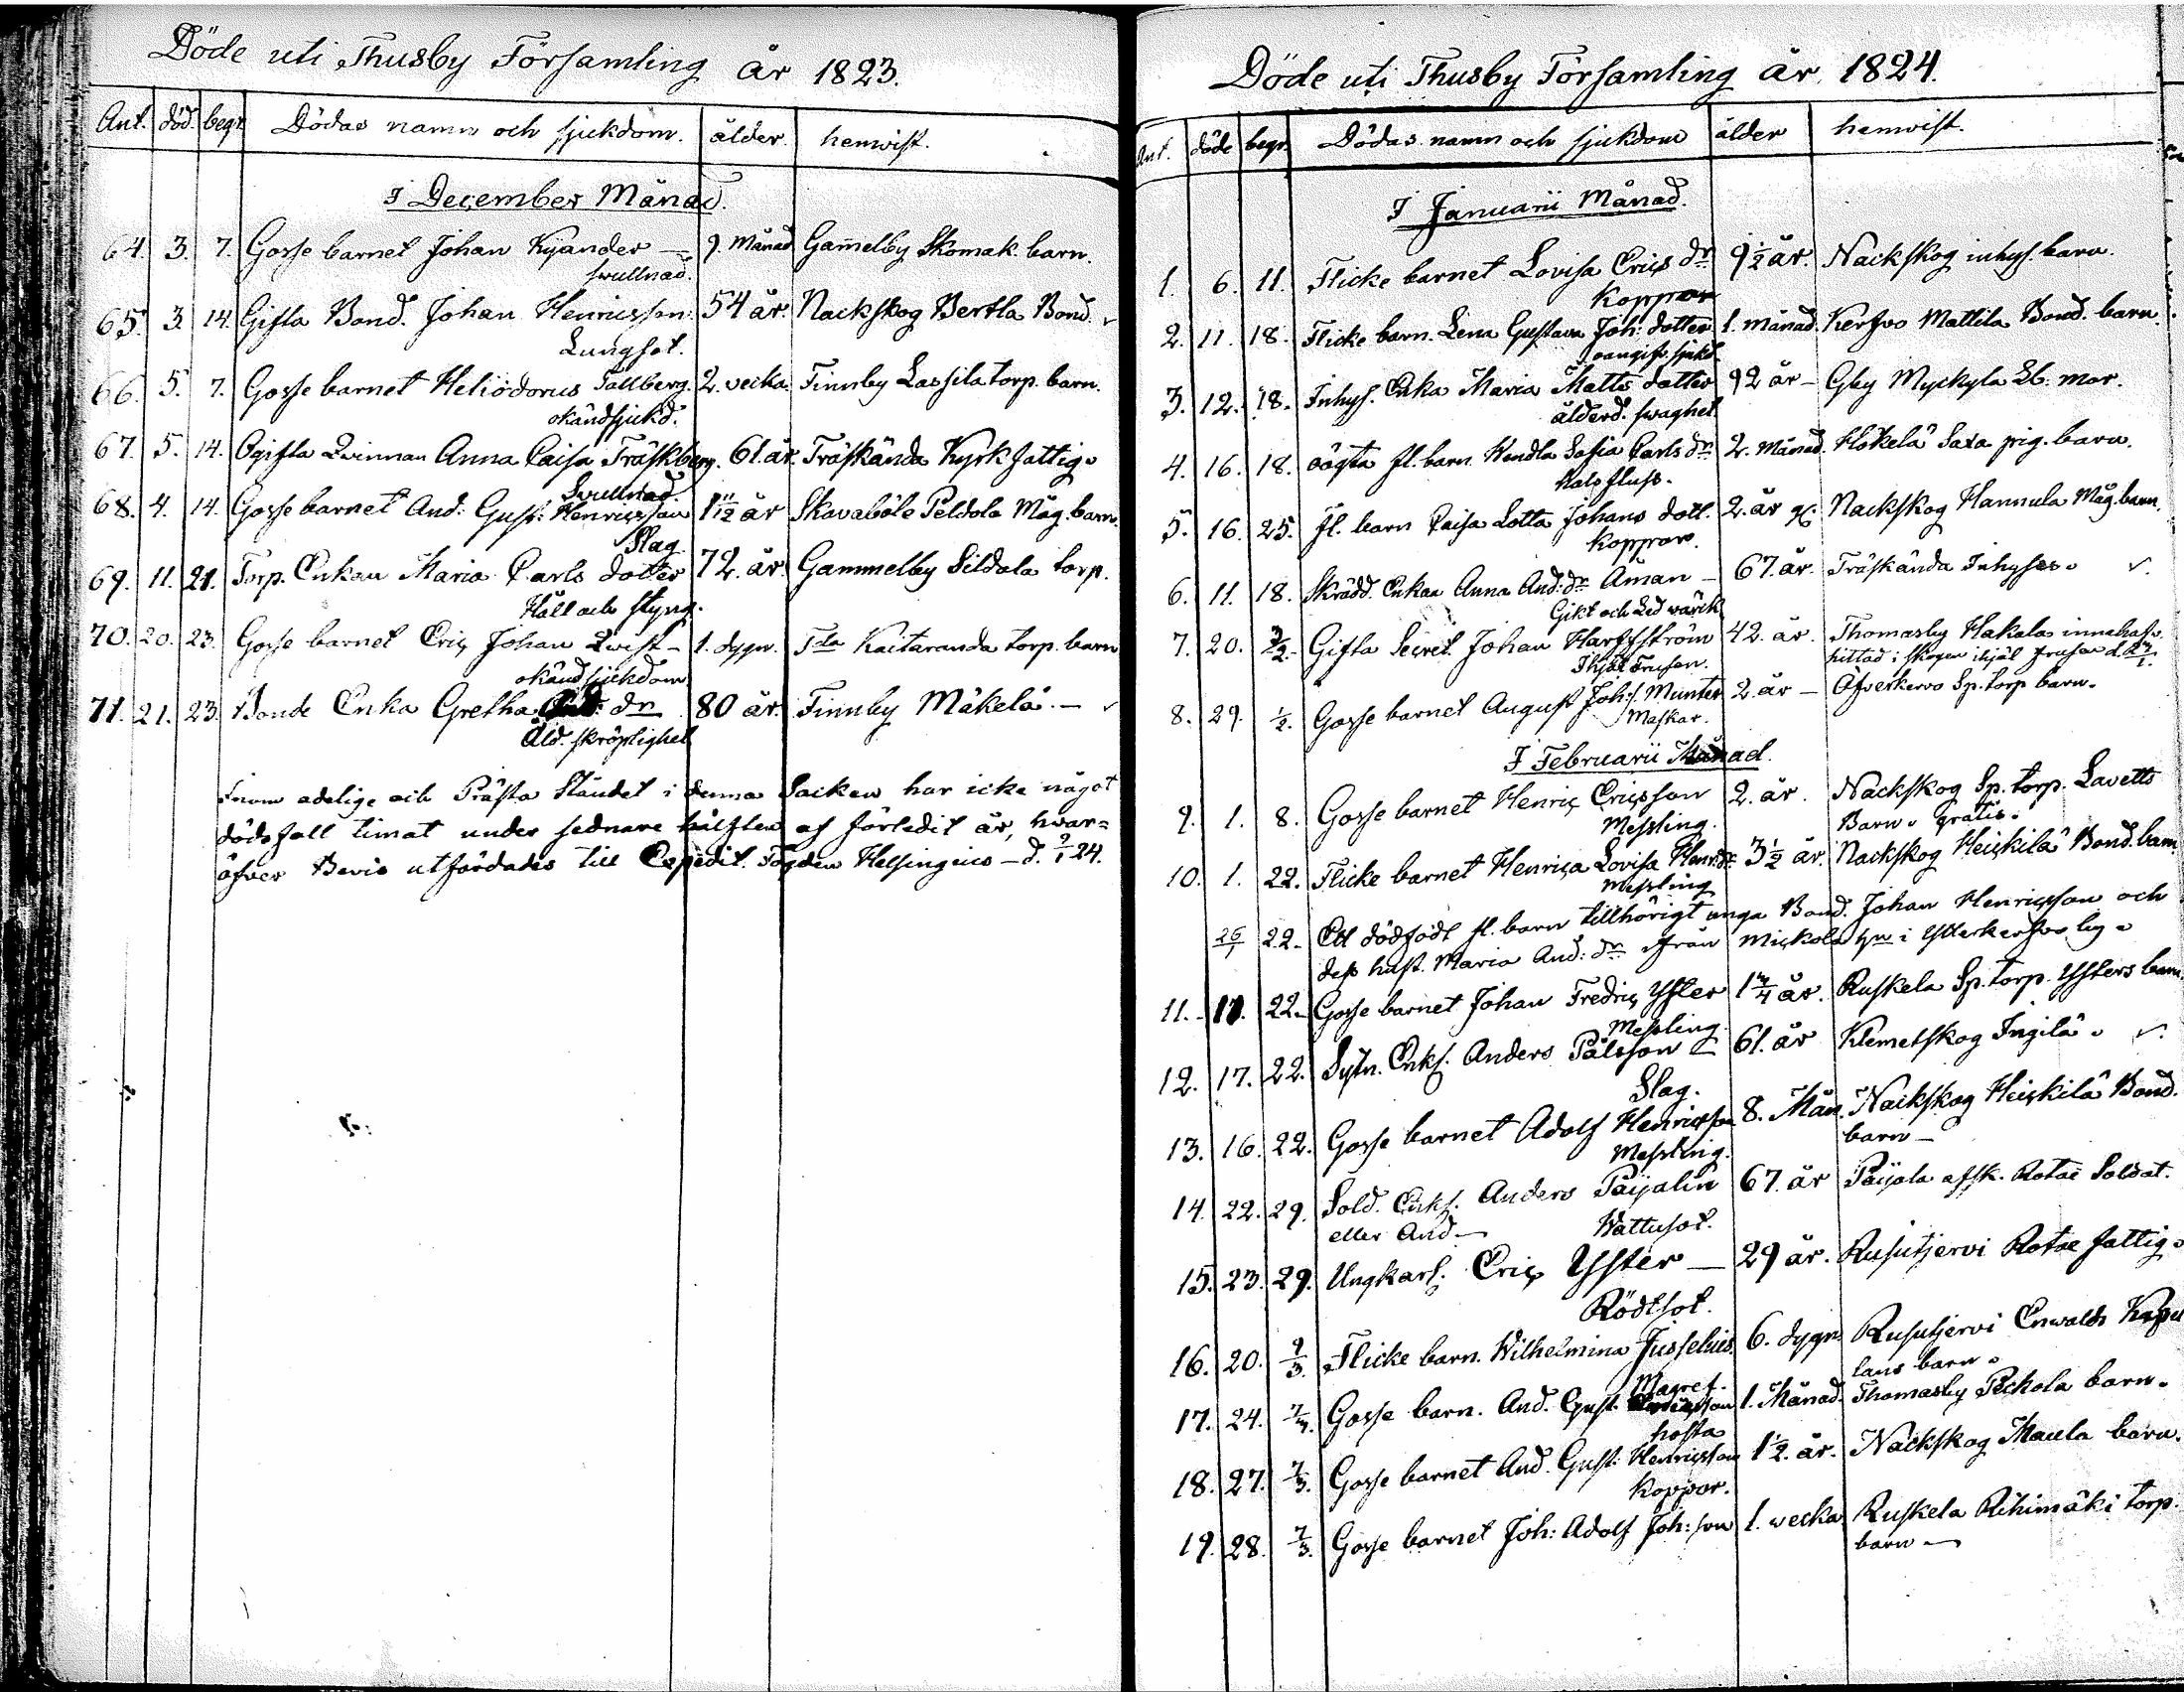 Döde uti Thusby Församling år 1823.
Ant. död. begr. Dödas namn och sjukdom. ålder. hemvist.
I December Månad.
64. 3. 7. Gosse barnet Johan Kyander — 9. Månad Gamelby Skomak. barn.
svullnad.
65. 3. 14. Gifta Bond. Johan Henricsson. 54 år. Nackskog Bertla Bond.
Lungsot.
66. 5. 7. Gosse barnet Heliodorus Tallberg. 2. vecka. Finnby Lassila torp. barn.
okändsjukd.
67. 5. 14. Ogifta Qvinnan Anna Caisa Träskberg. 61. år. Träskända Kyrk fattig.
Svullnad.
68. 4. 14. Gosse barnet And: Gust: Henricsson 1 11/12 år Skavaböle Peldola Måg. barn.
Slag.
69. 11. 21. Torp. Enkan Maria Carls dotter 72. år. Gammelby Sildala torp.
Håll och styng.
70. 20. 23. Gosse barnet Eric Johan Qvist — 1. dygn. Kaitaranda torp. barn
okänd sjukdom
71. 21. 23. Bonde Enka Gretha dr 80 år. Finnby Mäkelä. —
Åld. skröplighet
Inom adelige och Prästa Ståndet i denna Socken har icke något
dödsfall timat under sednare hälften af förledit år, hvar=
öfver Bevis utfärdades till Expedit. Fogden Helsingius — d. 9/1 24.
Döde uti Thusby Församling år 1824.
Ant. döde begr. Dödas namn och sjukdom ålder hemvist.
I Januarii Månad.
1. 6. 11. Flicke barnet Lovisa Erics dr 9 1/2 år. Nackskog inhys. barn.
Koppor
2. 11. 18. Flicke barn. Lena Gustava Joh: dotter 1. månad. Kerfvo Mattila Bond. barn.
oangifv. sjukd.
3. 12. 18. Inhys. Enka Maria Matts dotter 92 år — Gby Myckyla
ålderd. svaghet.
4. 16. 18. oägta fl. barn. Hendla Sofia Carls dr 2. Månad. Hökelä Saxa pig. barn.
halsfluss.
5. 16. 25. fl. barn Caisa Lotta Johans dott. 2. år Nackskog Hannula Måg. barn.
Koppor.
6. 11. 18. Skrädd. Enkan Anna And: dr Åman — 67. år. Träskända Inhyses.
Gikt och Led wärck
7. 20. Gifta Secret. Johan 42. år. Thomasby Hakala innehafv.
Ihjäl frusen. hittad i skogen ihjäl frusen
8. 29. 1/2. Gosse barnet August Joh:s Munter 2. år — Ofverkervo Sp. torp barn.
Maskar.
I Februarii Månad.
9. 1. 8. Gosse barnet Henric Ericsson 2. år. Nackskog Sp. torp. Lavetts
Messling. Barn. gratis.
10. 1. 22. Flicke barnet Henrica Lovisa Henr: dr 3 1/2 år. Nackskog Heickilä Bond. barn
messling
26/1 22. Ett dödfödt fl. barn tillhörigt unga Bond. Johan Henricsson och
dess hust. Maria And: dr ifrån Mickola hn i Ytterkerfvo by.
11. 17. 22. Gosse barnet Johan Fredric Yster 1 3/4 år. Ruskela Sp. torp. Ysters barn.
Messling.
12. 17. 22. Sytn. Enkl. Anders Pålsson — 61. år Klemetskog Ingilä.
Slag.
13. 16. 22. Gosse barnet Adolf Henricsson 8. Mån. Nackskog Heickilä Bond.
Messling. barn —
14. 22. 29. Sold. Enkl. Anders Paijalin 67. år Paijala afsk. Rotae Soldat.
eller And — Wattusot.
15. 23. 29. Ungkarl. Eric Yster — 29 år. Rusutjervi Rotae fattig.
Rödtsot.
16. 20. 9/3. Flicke barn. Wilhelmina Jusselius 6. dygn Rusutjervi Enwalds Kapel
Magref. lans barn.
17. 24. 7/3. Gosse barn. And. Gust. 1. Månad. Thomasby Peckola barn.
hosta
18. 27. 7/3. Gosse barnet And. Gust: Henricsson 1 1/2. år. Nackskog Maula barn.
Koppor.
19. 28. 7/3. Gosse barnet Joh: Adolf Joh: son 1. wecka Ruskela Rihimäki torp.
barn —